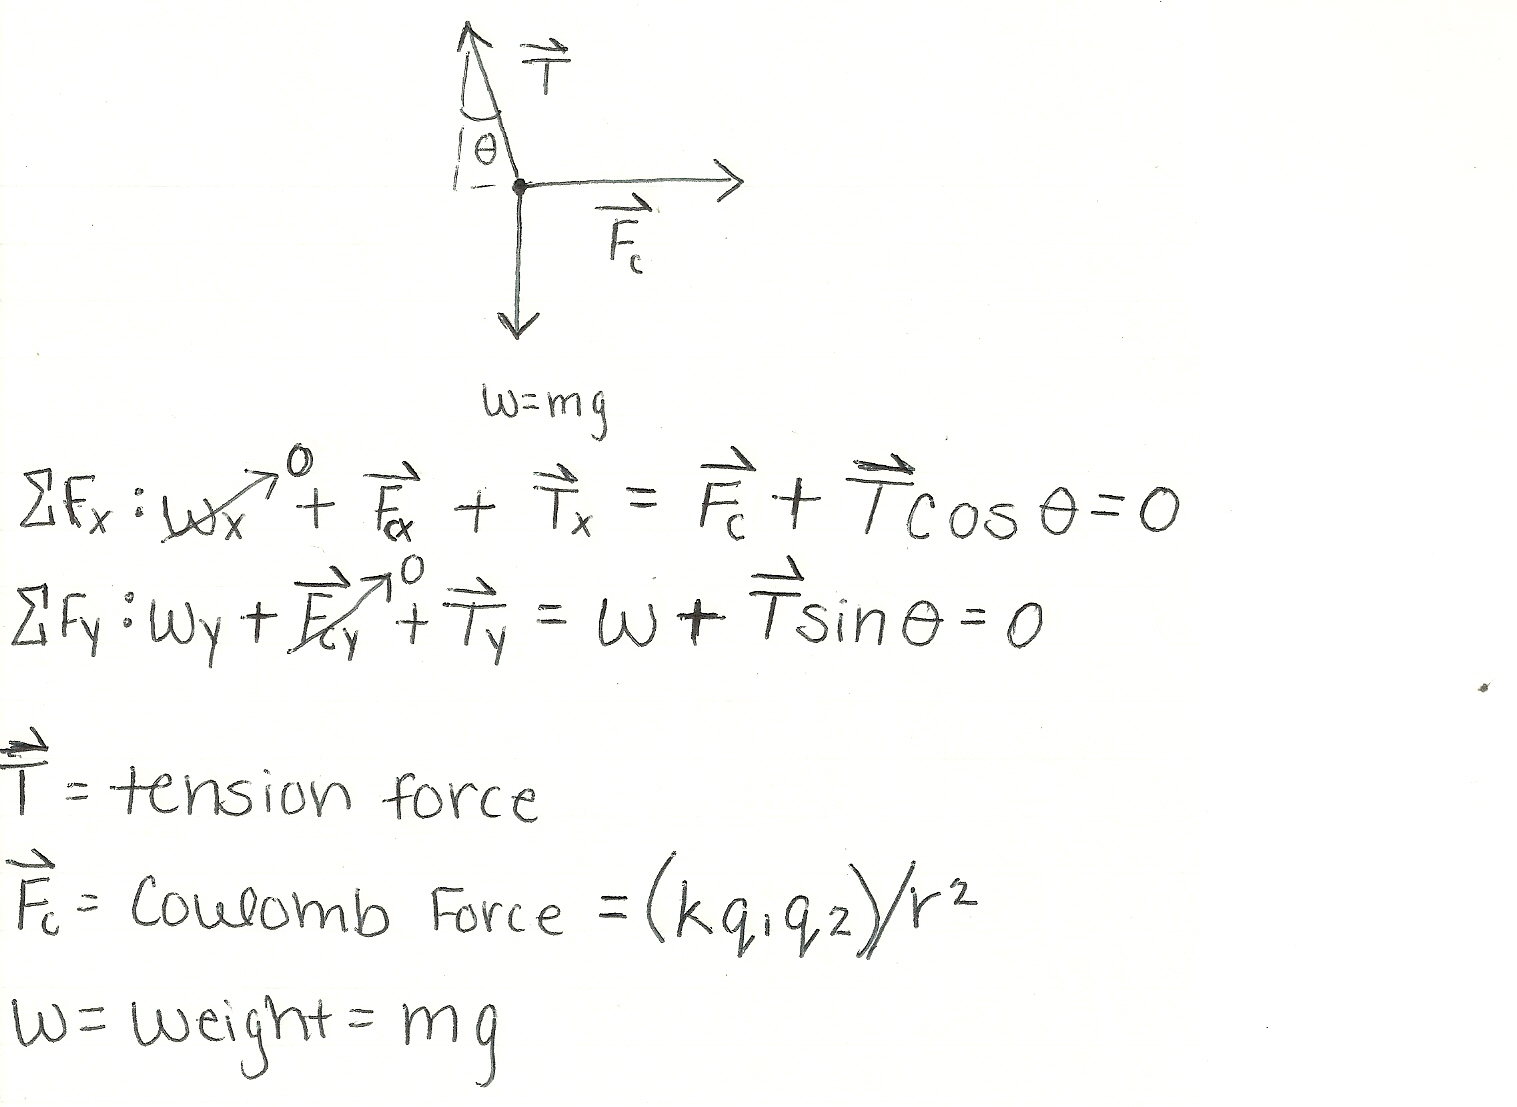 T⃗
θ
F⃗c
w=mg
ΣFx: wx→0 + F⃗cx + T⃗x = F⃗c + T⃗cos θ = 0
ΣFy: wy + F⃗cy→0 + T⃗y = w + T⃗sin θ = 0
T⃗ = tension force
F⃗c = Coulomb Force = (kq₁q₂)/r²
w = weight = mg